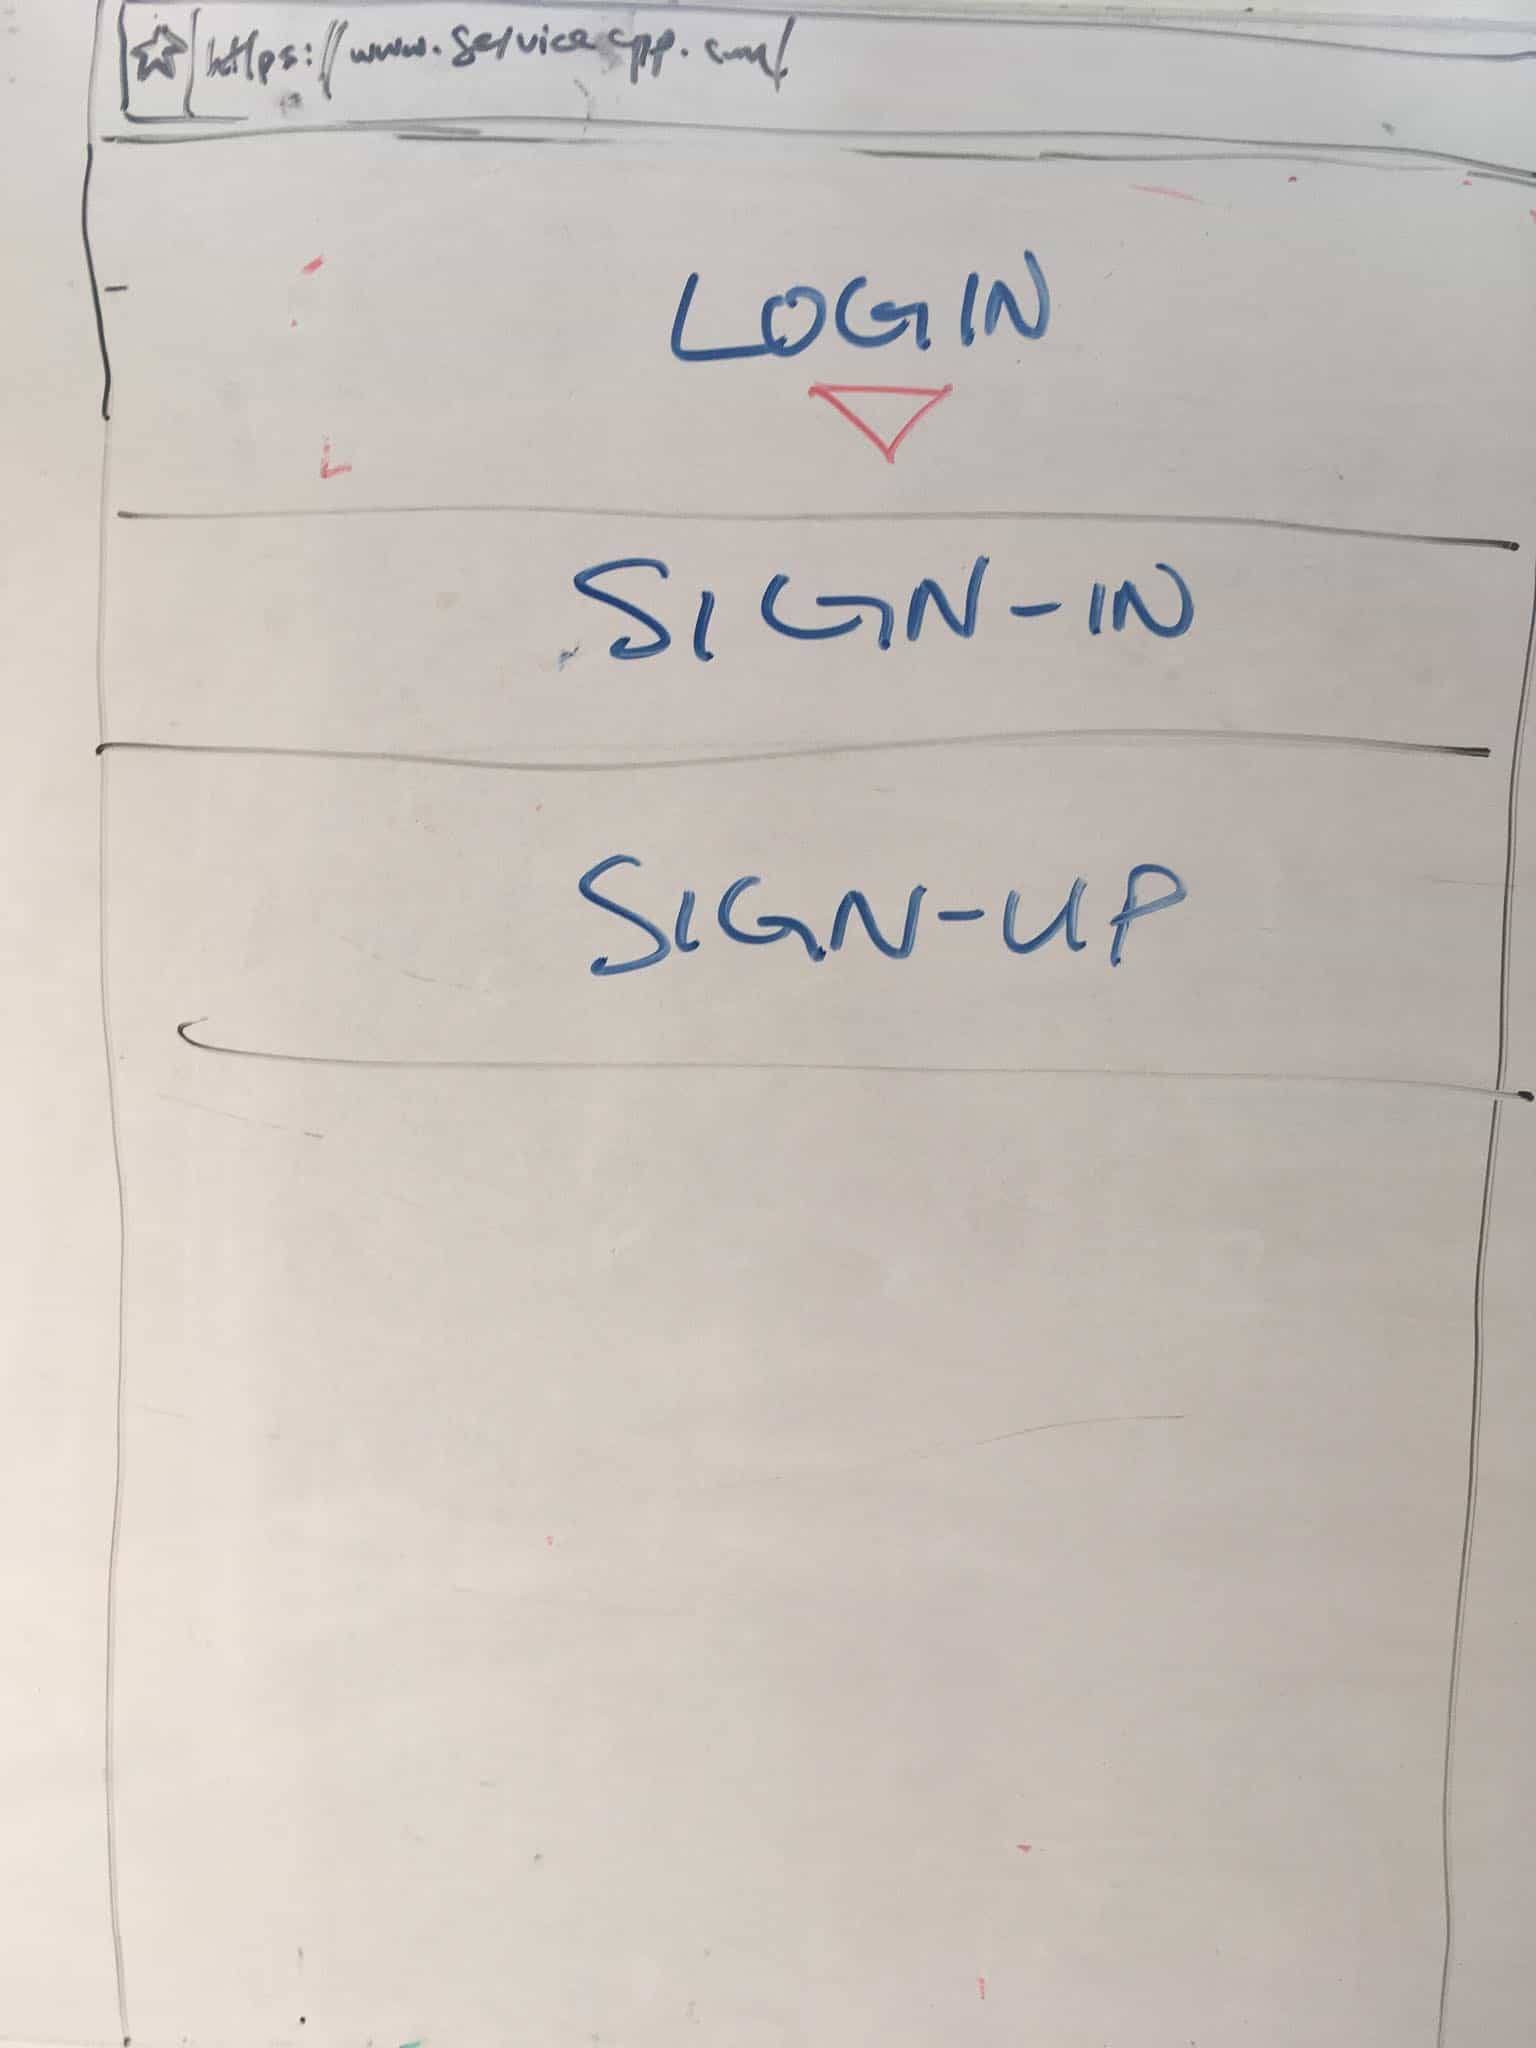 https://www.serviceapp.com/
LOGIN
SIGN-IN
SIGN-UP